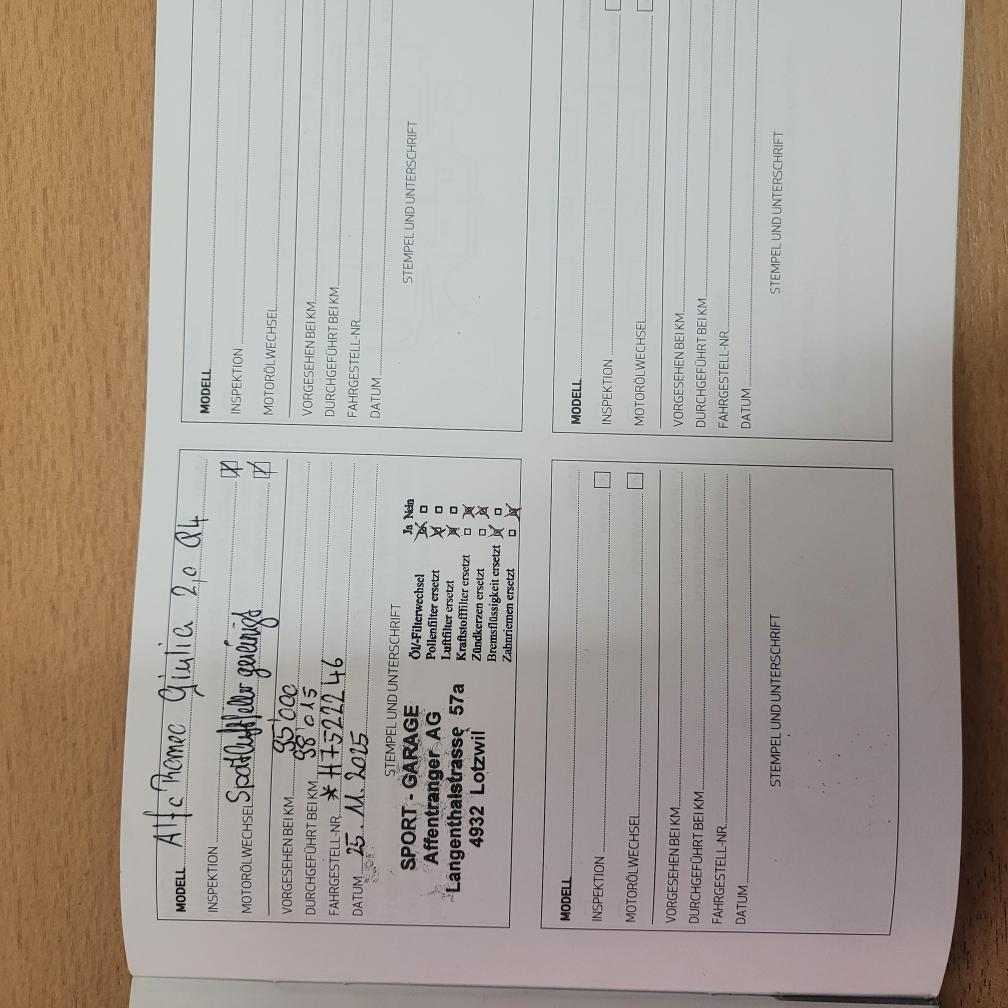 MODELL Alfa Romeo Giulia 2,0 Q4
INSPEKTION
MOTORÖLWECHSEL Sportluftfilter gereinigt
VORGESEHEN BEI KM 95'000
DURCHGEFÜHRT BEI KM 98'015
FAHRGESTELL-NR. *H7522246
DATUM 25.11.2025
STEMPEL UND UNTERSCHRIFT
SPORT - GARAGE
Affentranger AG
Langenthalstrasse 57a
4932 Lotzwil
Ja Nein
Öl/-Filterwechsel
Pollenfilter ersetzt
Luftfilter ersetzt
Kraftstofffilter ersetzt
Zündkerzen ersetzt
Bremsflüssigkeit ersetzt
Zahnriemen ersetzt
MODELL
INSPEKTION
MOTORÖLWECHSEL
VORGESEHEN BEI KM
DURCHGEFÜHRT BEI KM
FAHRGESTELL-NR.
DATUM
STEMPEL UND UNTERSCHRIFT
MODELL
INSPEKTION
MOTORÖLWECHSEL
VORGESEHEN BEI KM
DURCHGEFÜHRT BEI KM
FAHRGESTELL-NR.
DATUM
STEMPEL UND UNTERSCHRIFT
MODELL
INSPEKTION
MOTORÖLWECHSEL
VORGESEHEN BEI KM
DURCHGEFÜHRT BEI KM
FAHRGESTELL-NR.
DATUM
STEMPEL UND UNTERSCHRIFT